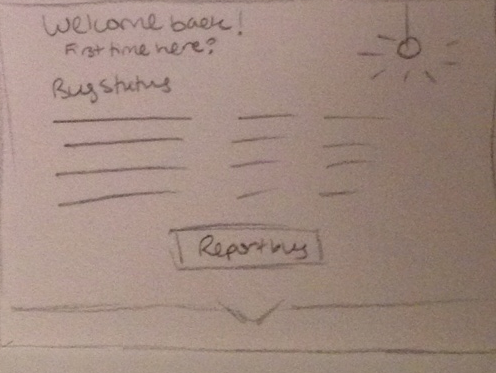 Welcome back!
First time here?
Bug Status
Report bug